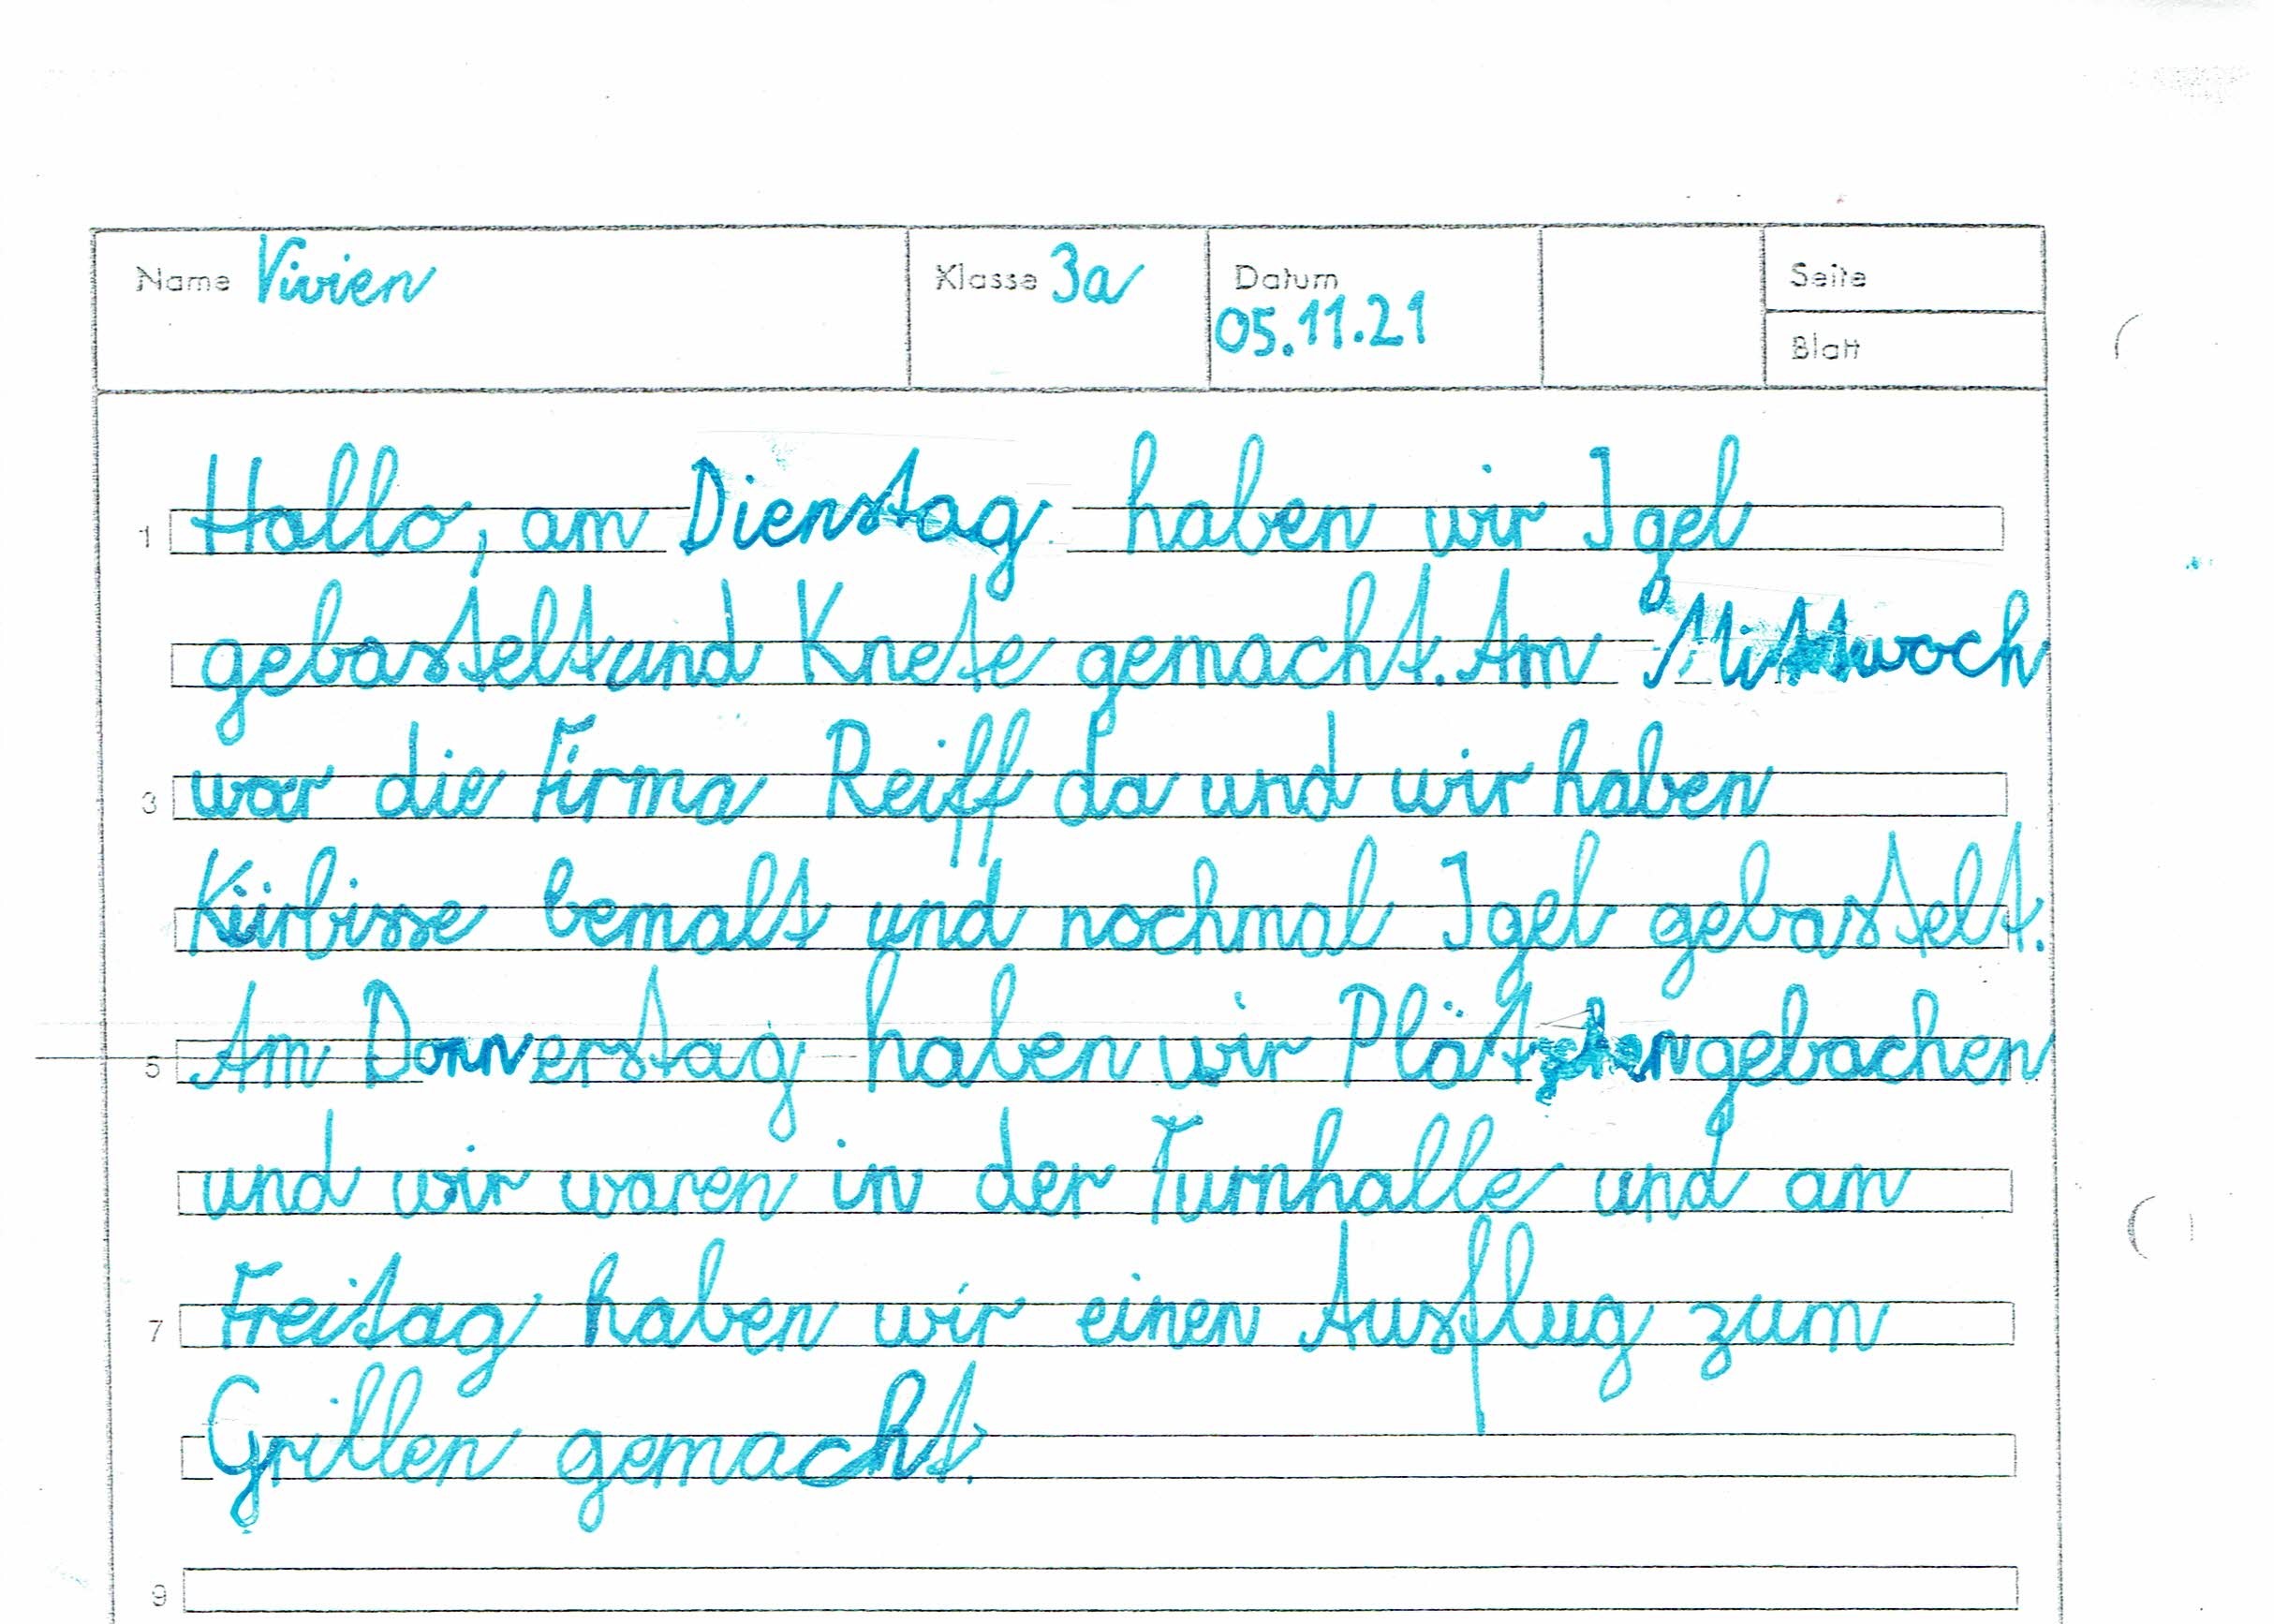 Name Vivien Klasse 3a Datum Seite
05.11.21
Blatt
1 Hallo, am Dienstag haben wir Igel
gebastelt und Knete gemacht. Am Mittwoch
3 war die Firma Reiff da und wir haben
Kürbisse bemalt und nochmal Igel gebastelt.
5 Am Donnerstag haben wir Plätzchen gebachen
und wir waren in der Turnhalle und am
7 Freitag haben wir einen Ausflug zum
Grillen gemacht.
9